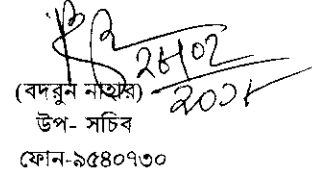 ২৮/০২
২০১৮
(বদরুন নাহার)
উপ- সচিব
ফোন-৯৫৪০৭৩০